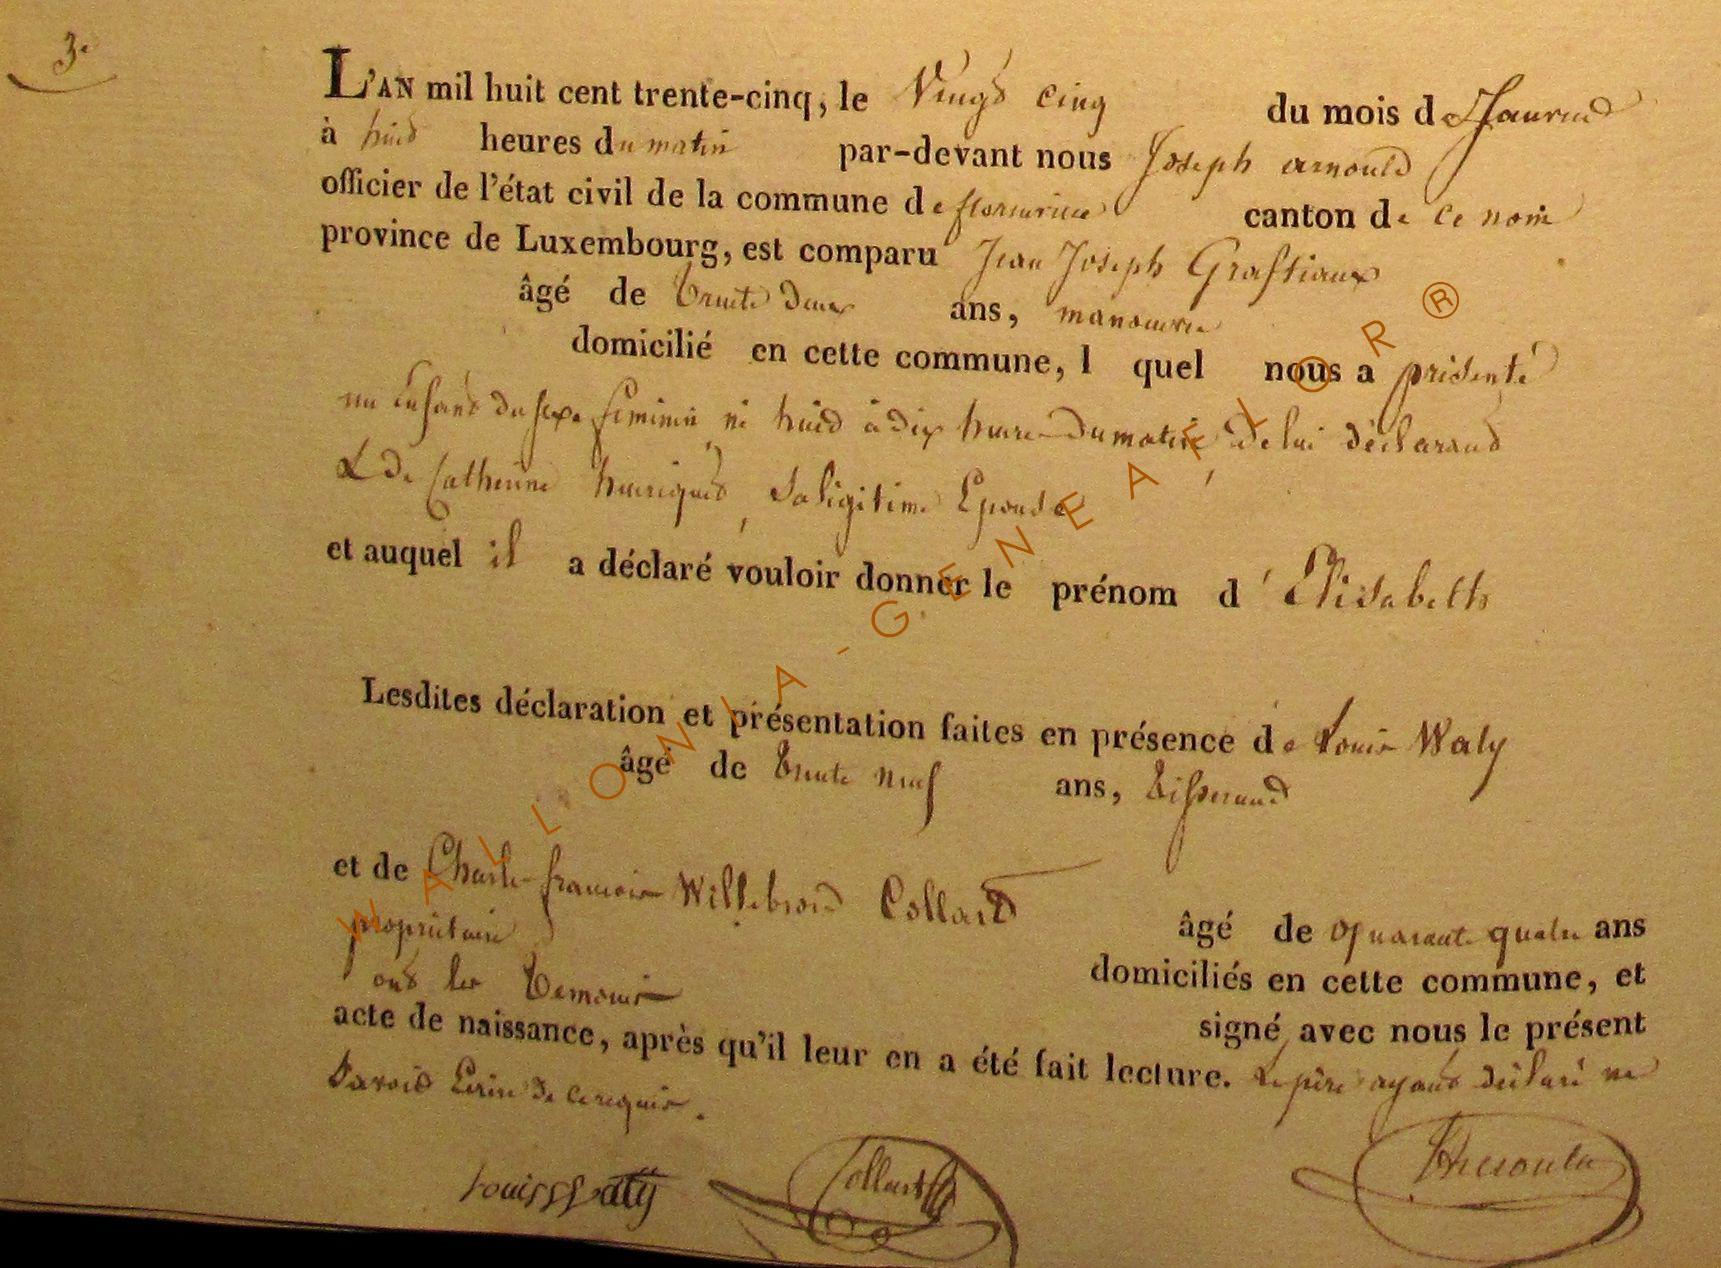 3.e
L'AN mil huit cent trente-cinq, le Vingt cinq du mois de Janvier
à huit heures du matin par-devant nous Joseph arnould
officier de l'état civil de la commune de florenville canton de ce nom
province de Luxembourg, est comparu Jean Joseph Grastiaux
âgé de trente deux ans, manouvre
domicilié en cette commune, l quel nous a présenté
un Enfant du sexe feminin né huid à dix heures du matin, de lui déclarant
& de Catherine henriquet, Sa légitime Epouse
et auquel il a déclaré vouloir donner le prénom d'Elisabeth
Lesdites déclaration et présentation faites en présence de Louis Waty
âgé de trente neuf ans, tisserand
et de Charles françois Willebrord Collard
propriétaire âgé de quarante quatre ans
domiciliés en cette commune, et
ont les temoins signé avec nous le présent
acte de naissance, après qu'il leur en a été fait lecture. Le père ayant déclaré ne
Savoir Ecrire de ce requis.
Louis Waty Collard Arnould
WALLONIA-GENEAFLOR®